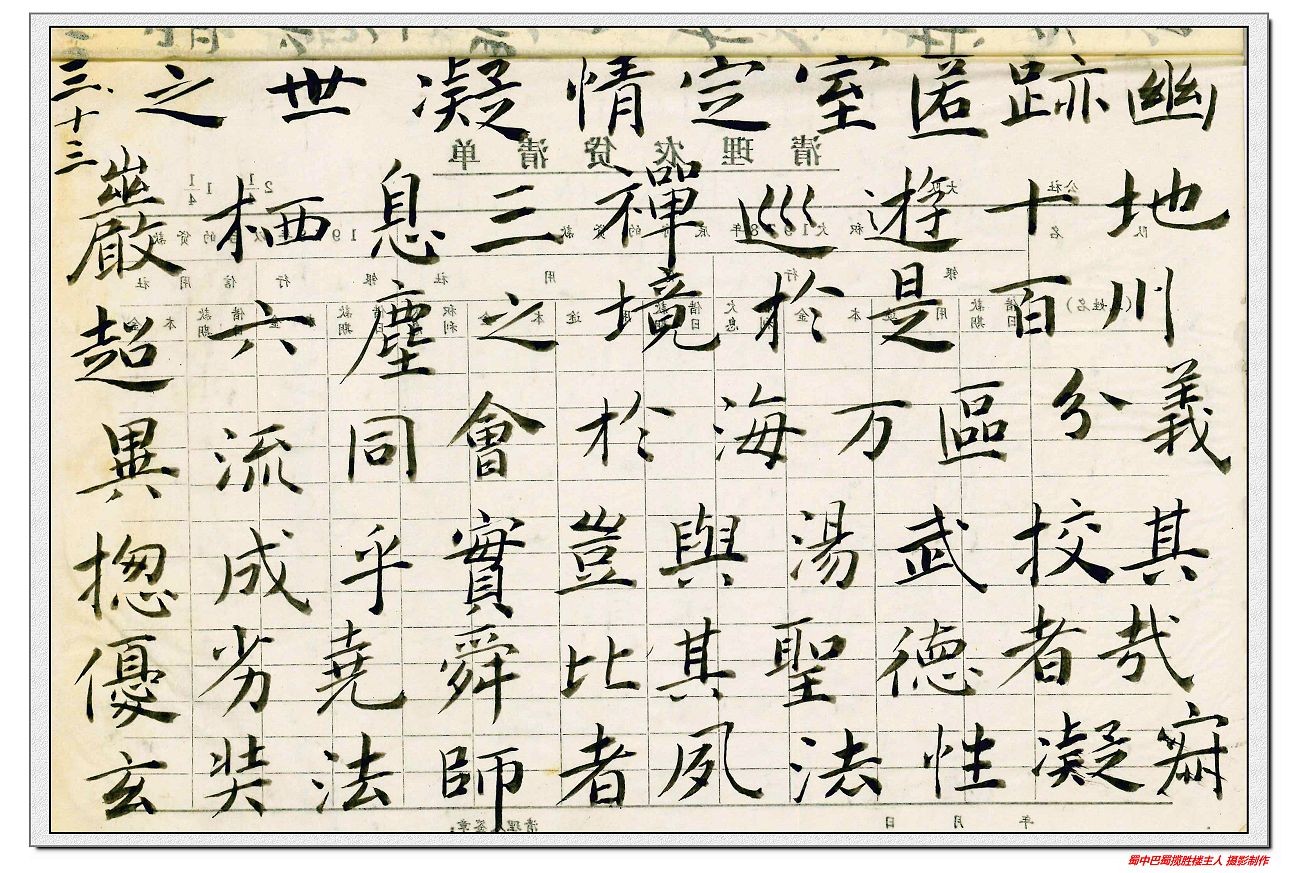 三、十三
之世凝情定室匿跡幽
巖栖息三禪巡遊十地
超六塵之境於是百川
異流同會於海万區分義
揔成乎實豈與湯武挍其
優劣堯舜比其聖德者哉
玄奘法師者夙法性凝寂
清理农贷清单
蜀中巴蜀揽胜楼主人 摄影制作